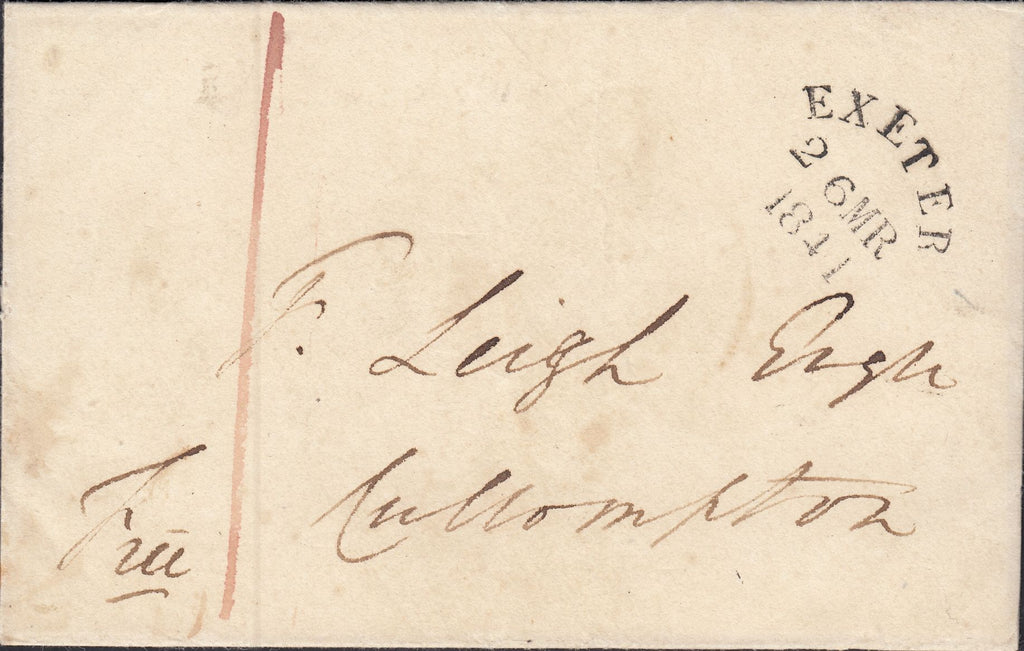 EXETER
26MR
1841
F. Leigh Esqre
Cullompton
Free